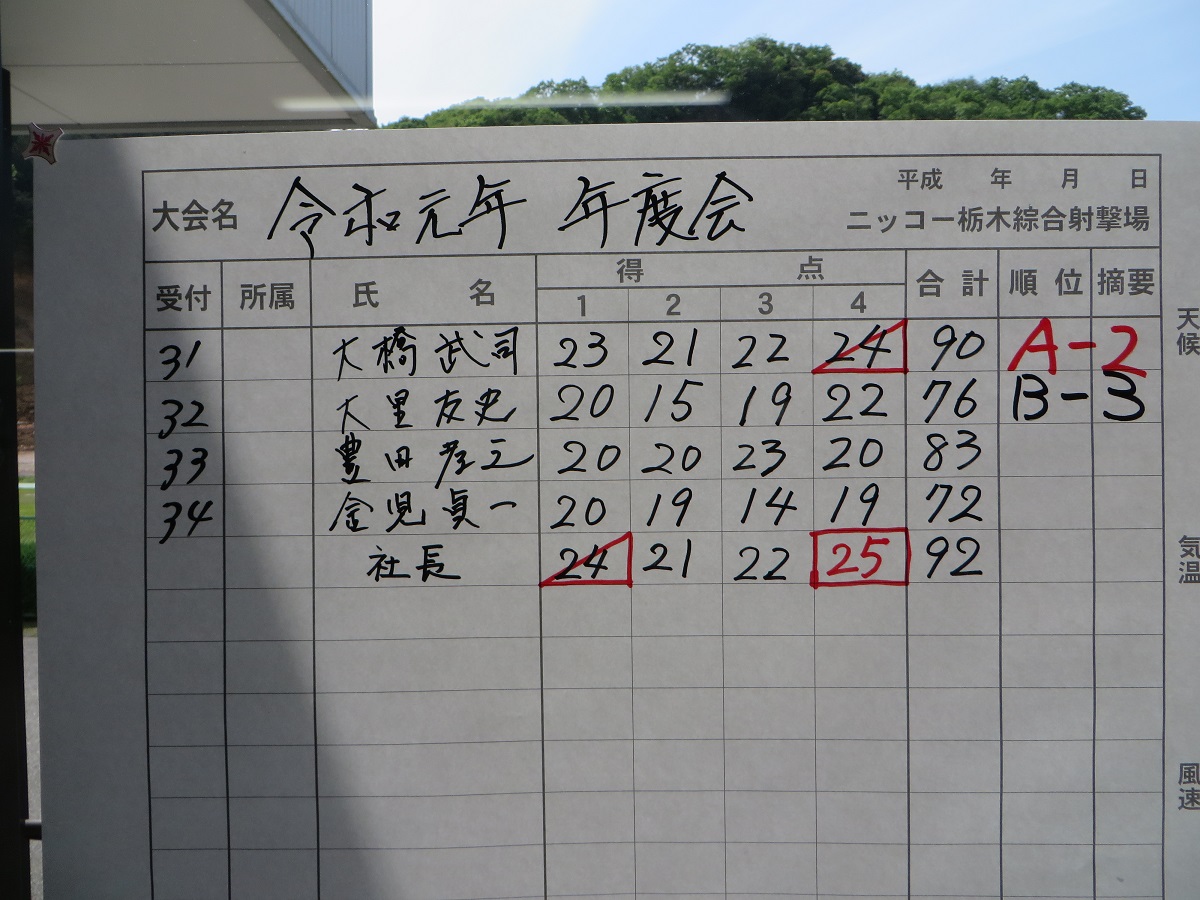 大会名 令和元年 年度会
平成 年 月 日
ニッコー栃木綜合射撃場
受付 所属 氏名 得点 合計 順位 摘要
1 2 3 4
31 大橋武司 23 21 22 24 90 A-2
32 大里友史 20 15 19 22 76 B-3
33 豊田孝三 20 20 23 20 83
34 金児貞一 20 19 14 19 72
社長 24 21 22 25 92
天候
気温
風速